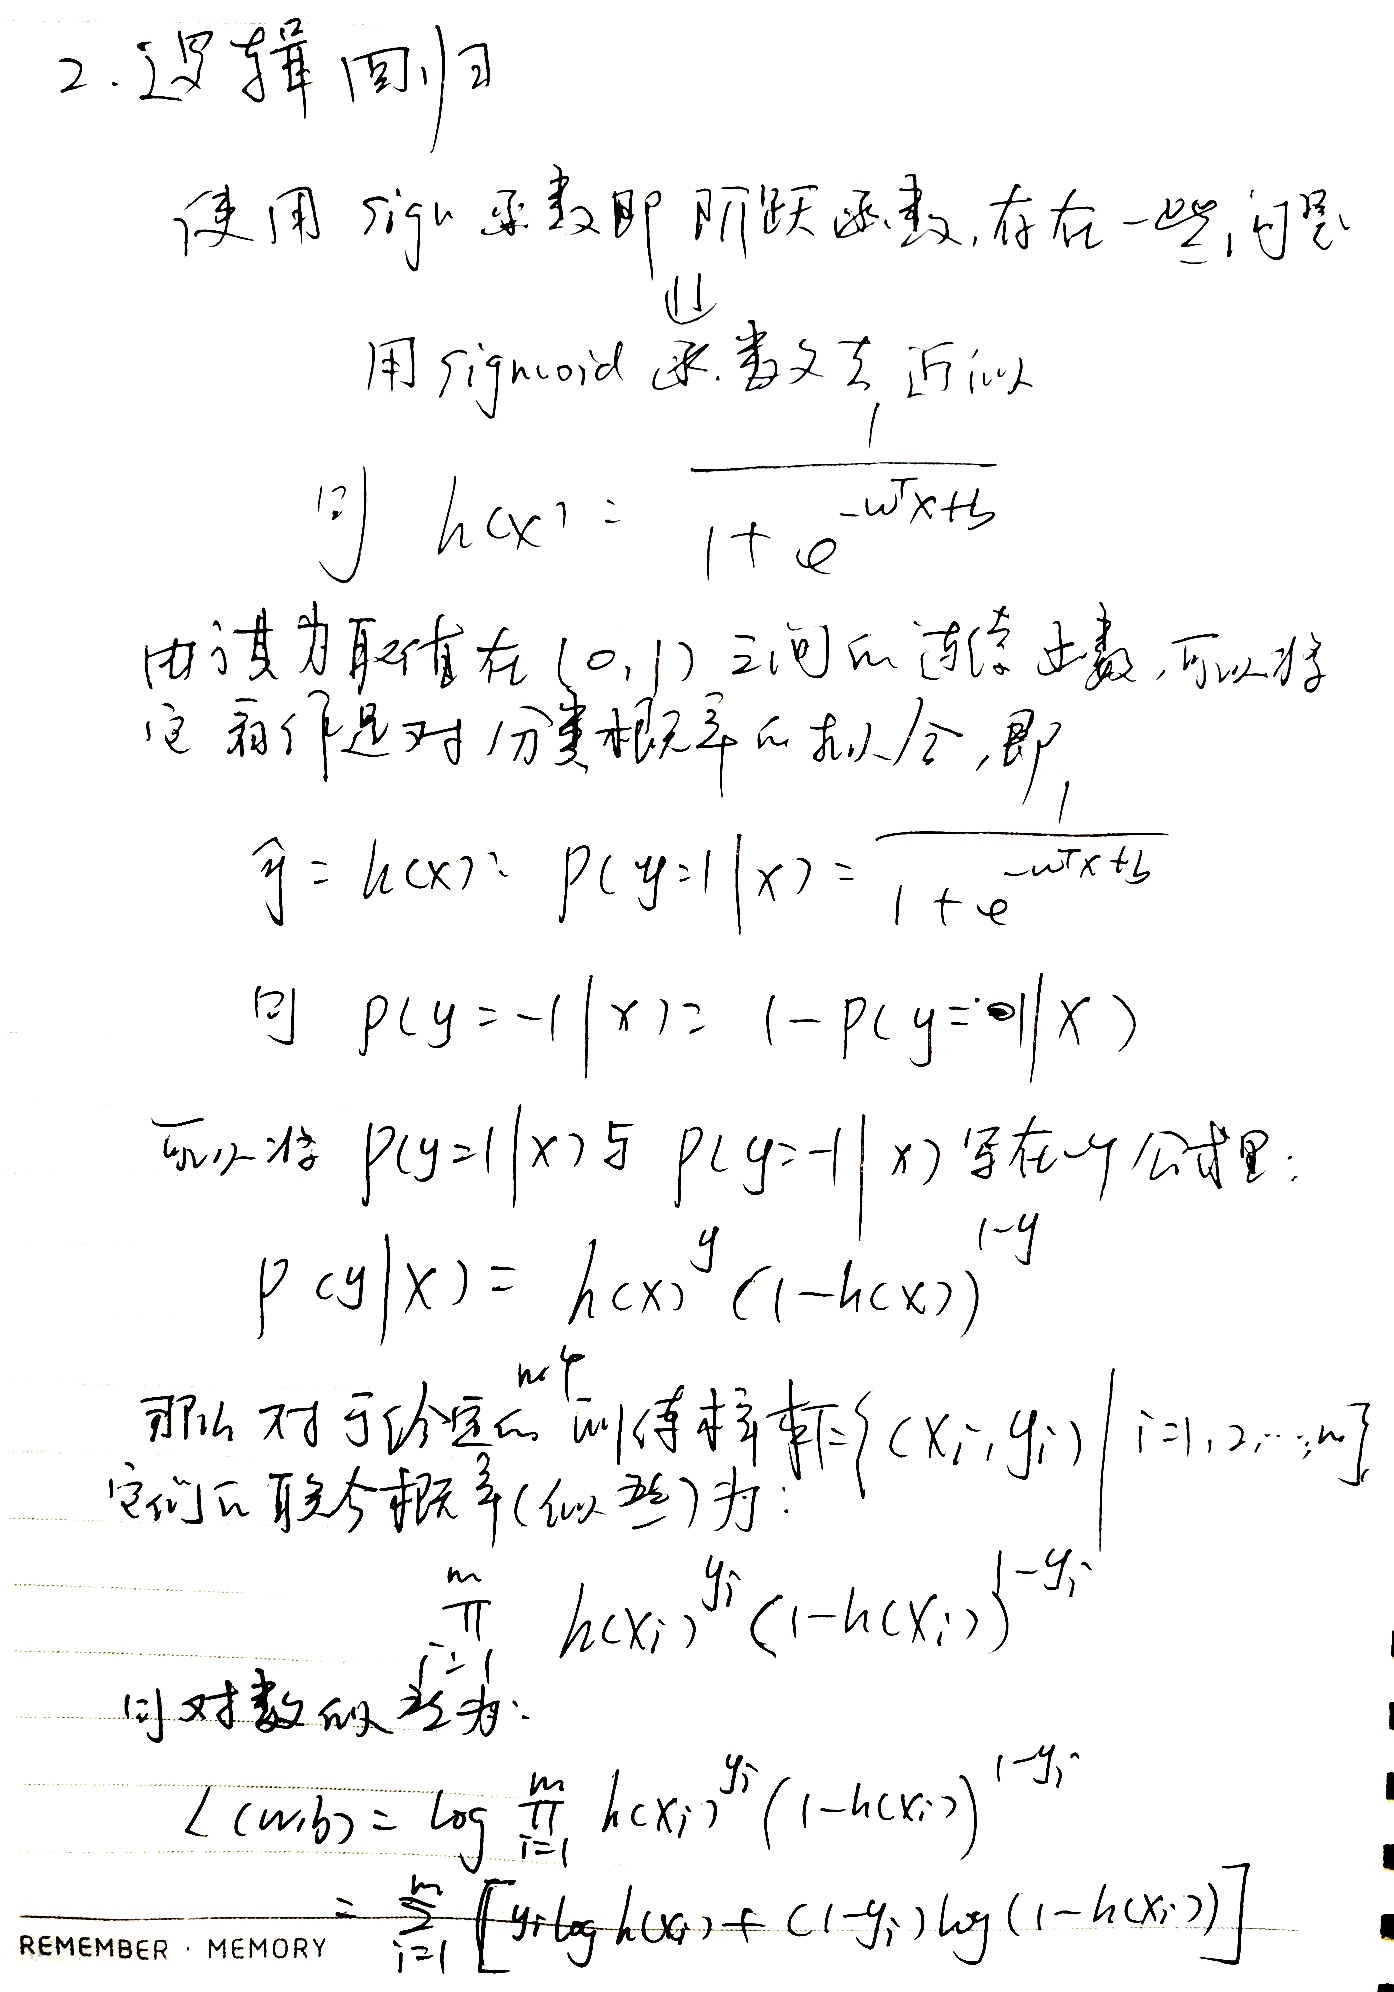 2. 逻辑回归
使用 sign 函数即 阶跃函数, 存在一些问题
⇓
用 sigmoid 函数去近似
则 h(x) = 1 / (1 + e^{-w^T x + b})
由于其为取值在 (0,1) 之间的连续函数, 可以将
它看作是对分类概率的拟合, 即
ŷ = h(x) = P(y=1|x) = 1 / (1 + e^{-w^T x + b})
则 P(y=-1|x) = 1 - P(y=1|x)
可以将 P(y=1|x) 与 P(y=-1|x) 写在一个公式里:
P(y|x) = h(x)^y (1-h(x))^{1-y}
那么对于给定的 m个 训练样本 {(x_i, y_i) | i=1,2,…,m}
它们的联合概率(似然)为:
∏_{i=1}^{m} h(x_i)^{y_i} (1-h(x_i))^{1-y_i}
则对数似然为:
L(w,b) = log ∏_{i=1}^{m} h(x_i)^{y_i} (1-h(x_i))^{1-y_i}
= ∑_{i=1}^{m} [y_i log h(x_i) + (1-y_i) log(1-h(x_i))]
REMEMBER · MEMORY